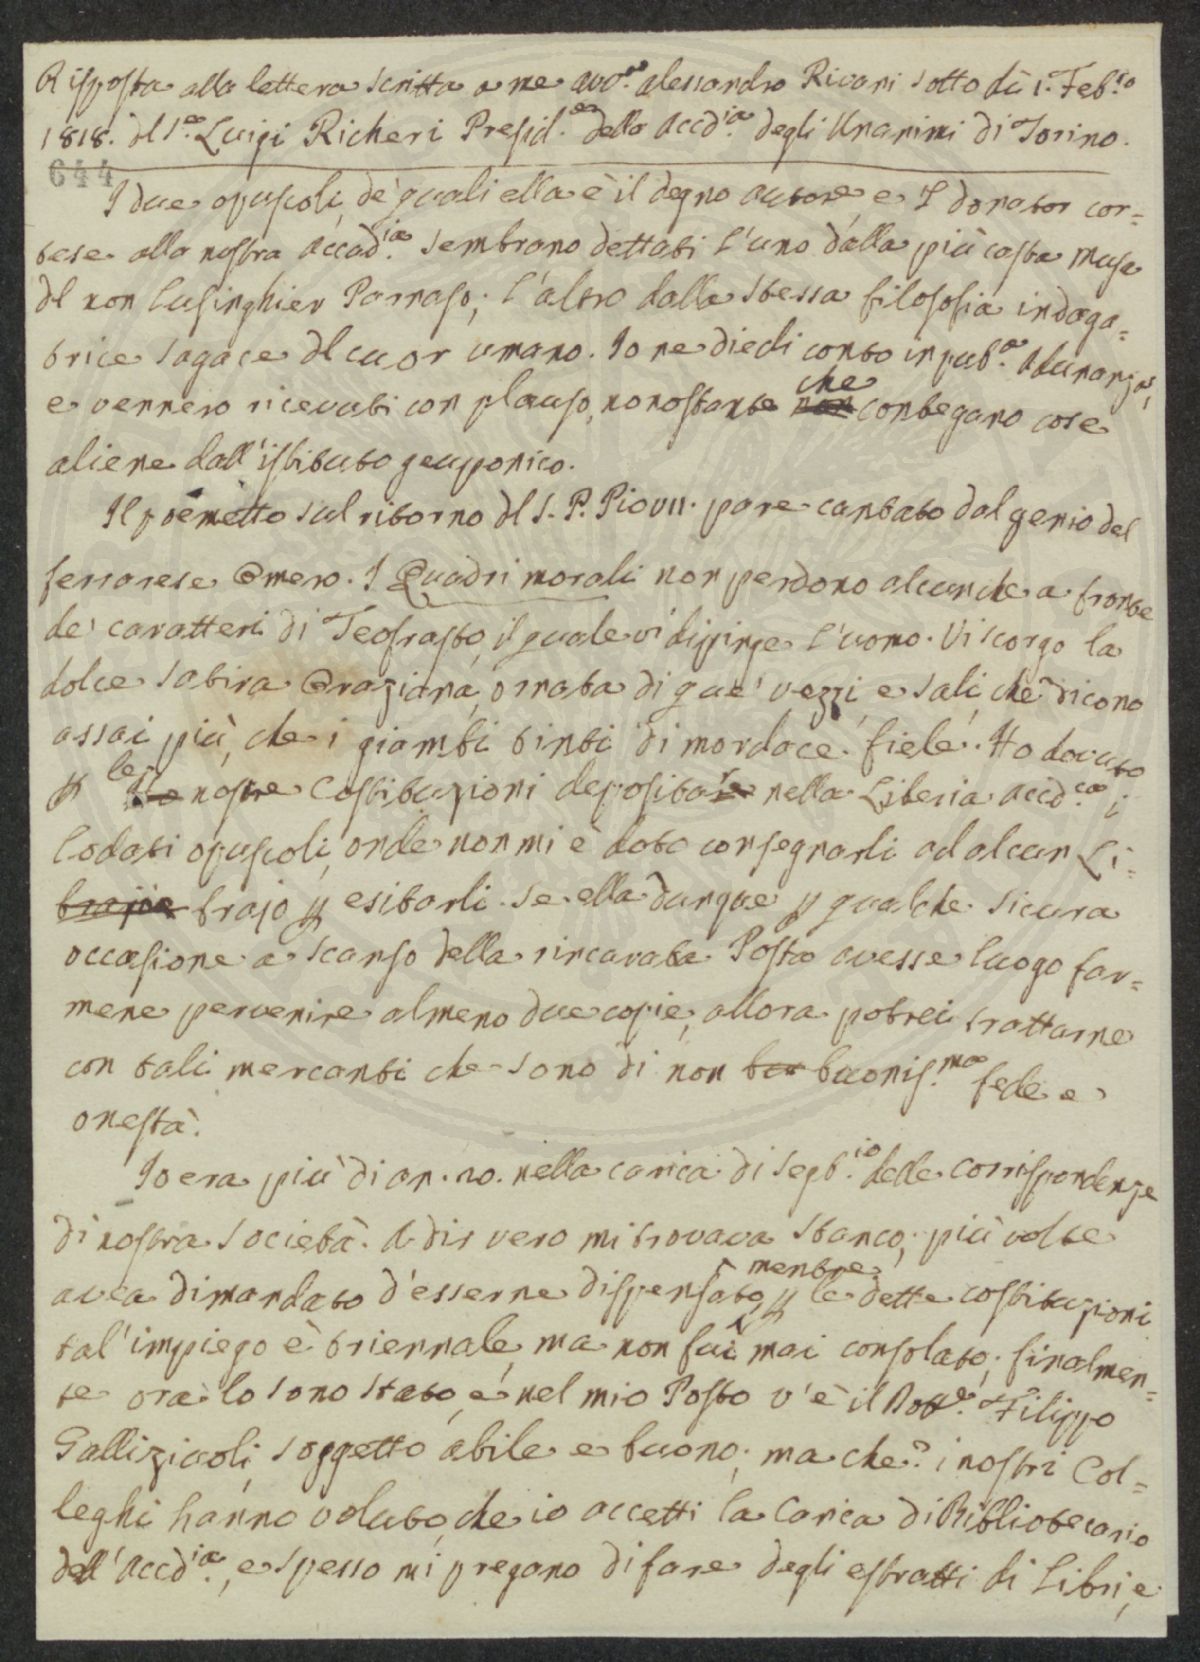 Risposta alla lettera scritta a me avvo. Alessandro Ricani sotto dì 1. Feb.ro
1818. dl S.r Luigi Richeri Presid.e della Accd.ia degli Unanimi di Torino.
644
I due opuscoli, de' quali ella è il degno autore, e 'l donator cor=
tese alla nostra Accad.ia sembrano dettati l'uno dalla più casta musa
dl non lusinghier Parnaso; l'altro dalla stessa filosofia indaga=
trice sagace dl cuor umano. Io ne diedi conto in pub.a Adunanza,
e vennero ricevuti con plauso, nonostante non che contegano cose
aliene dall'istituto geuponico.
Il poemetto sul ritorno dl S. P. Pio VII. pare cantato dal genio del
ferrarese Omero. I Quadri morali non perdono alcunche a fronte
de' caratteri di Teofrasto, il quale vi dippinge l'uomo. Vi scorgo la
dolce satira Oraziana, ornata di que' vezzi, e sali, che dicono
assai più, che i giambi tinti di mordace fiele. Ho dovuto
p le nostre Costituzioni depositare nella Libreria Accd.ca i
lodati opuscoli, onde non mi è dato consegnarli ad alcun Li=
brajo brajo p esitarli. Se ella dunque p qualche sicura
occasione a scanso della rincarata Posta avesse luogo far=
mene pervenire almeno due copie, allora potrei trattarne
con tali mercanti che sono di non bu buonis.ma fede e
onestà.
Io era più di an. 20. nella carica di Segt.io delle corrispondenze
di nostra Società. A dir vero mi trovava stanco; più volte
avea dimandato d'esserne dispensato, mentre p le dette costituzioni
tal'impiego è triennale, ma non fui mai consolato; finalmen=
te ora lo sono stato, e nel mio Posto v'è il Dott.e Filippo
Gallizioli, soggetto abile e buono; ma che? i nostri Col=
leghi hanno voluto, che io accetti la Carica di Bibliotecario
dell'Accd.ia, e spesso mi pregano di fare degli estratti di Libri, e